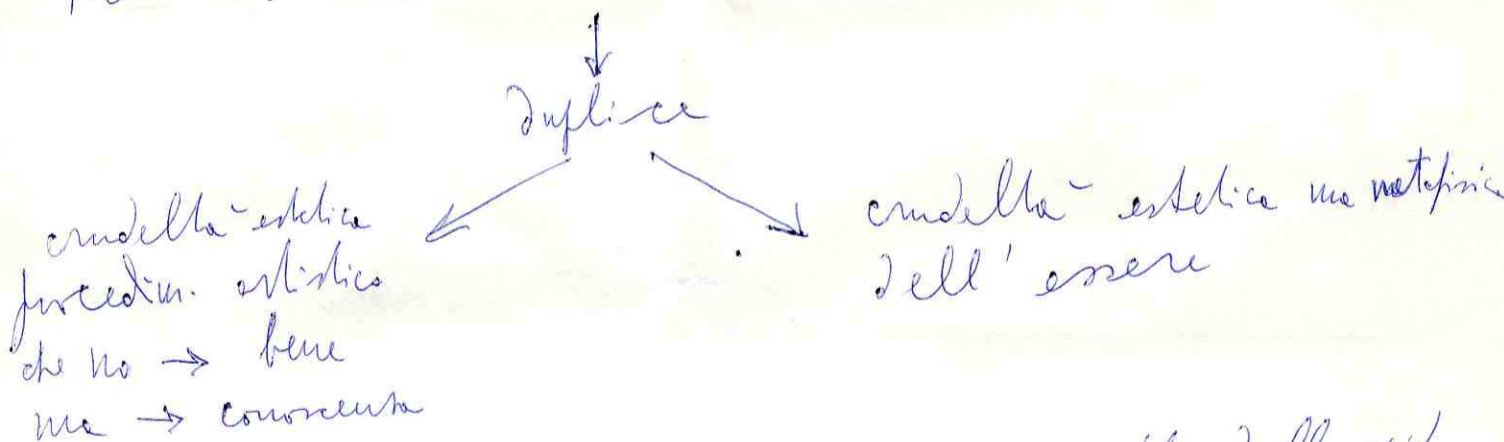 duplice
crudeltà estetica
procedim. artistico
che no → bene
ma → conoscenza
crudeltà estetica ma metafisica
dell'essere